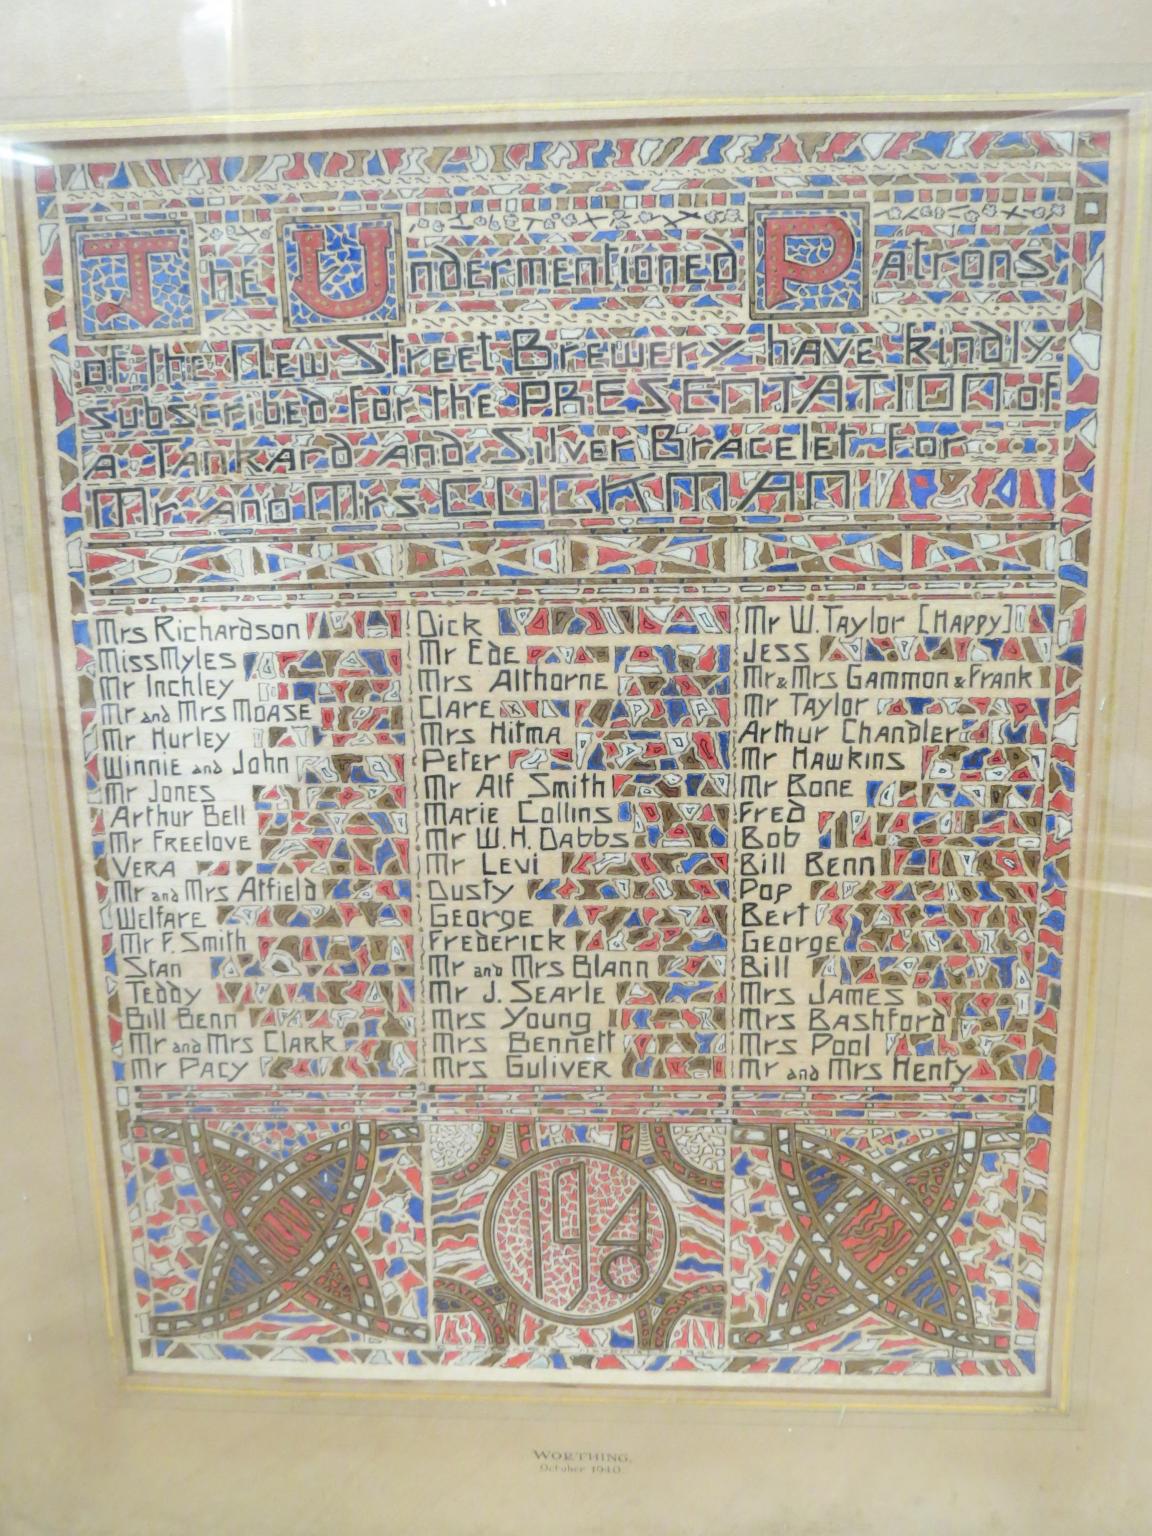 The Undermentioned Patrons
of the New Street Brewery have kindly
subscribed for the PRESENTATION of
a Tankard and Silver Bracelet for
Mr and Mrs COCKMAN
Mrs Richardson
Miss Myles
Mr Inchley
Mr and Mrs Moase
Mr Hurley
Winnie and John
Mr Jones
Arthur Bell
Mr Freelove
Vera
Mr and Mrs Atfield
Welfare
Mr F. Smith
Stan
Teddy
Bill Benn
Mr and Mrs Clark
Mr Pacy
Dick
Mr Ede
Mrs Althorne
Clare
Mrs Hitma
Peter
Mr Alf Smith
Marie Collins
Mr W. H. Dabbs
Mr Levi
Dusty
George
Frederick
Mr and Mrs Blann
Mr J. Searle
Mrs Young
Mrs Bennett
Mrs Guliver
Mr W. Taylor [Happy]
Jess
Mr & Mrs Gammon & Frank
Mr Taylor
Arthur Chandler
Mr Hawkins
Mr Bone
Fred
Bob
Bill Benn
Pop
Bert
George
Bill
Mrs James
Mrs Bashford
Mrs Pool
Mr and Mrs Henty
1940
WORTHING.
October 1940.